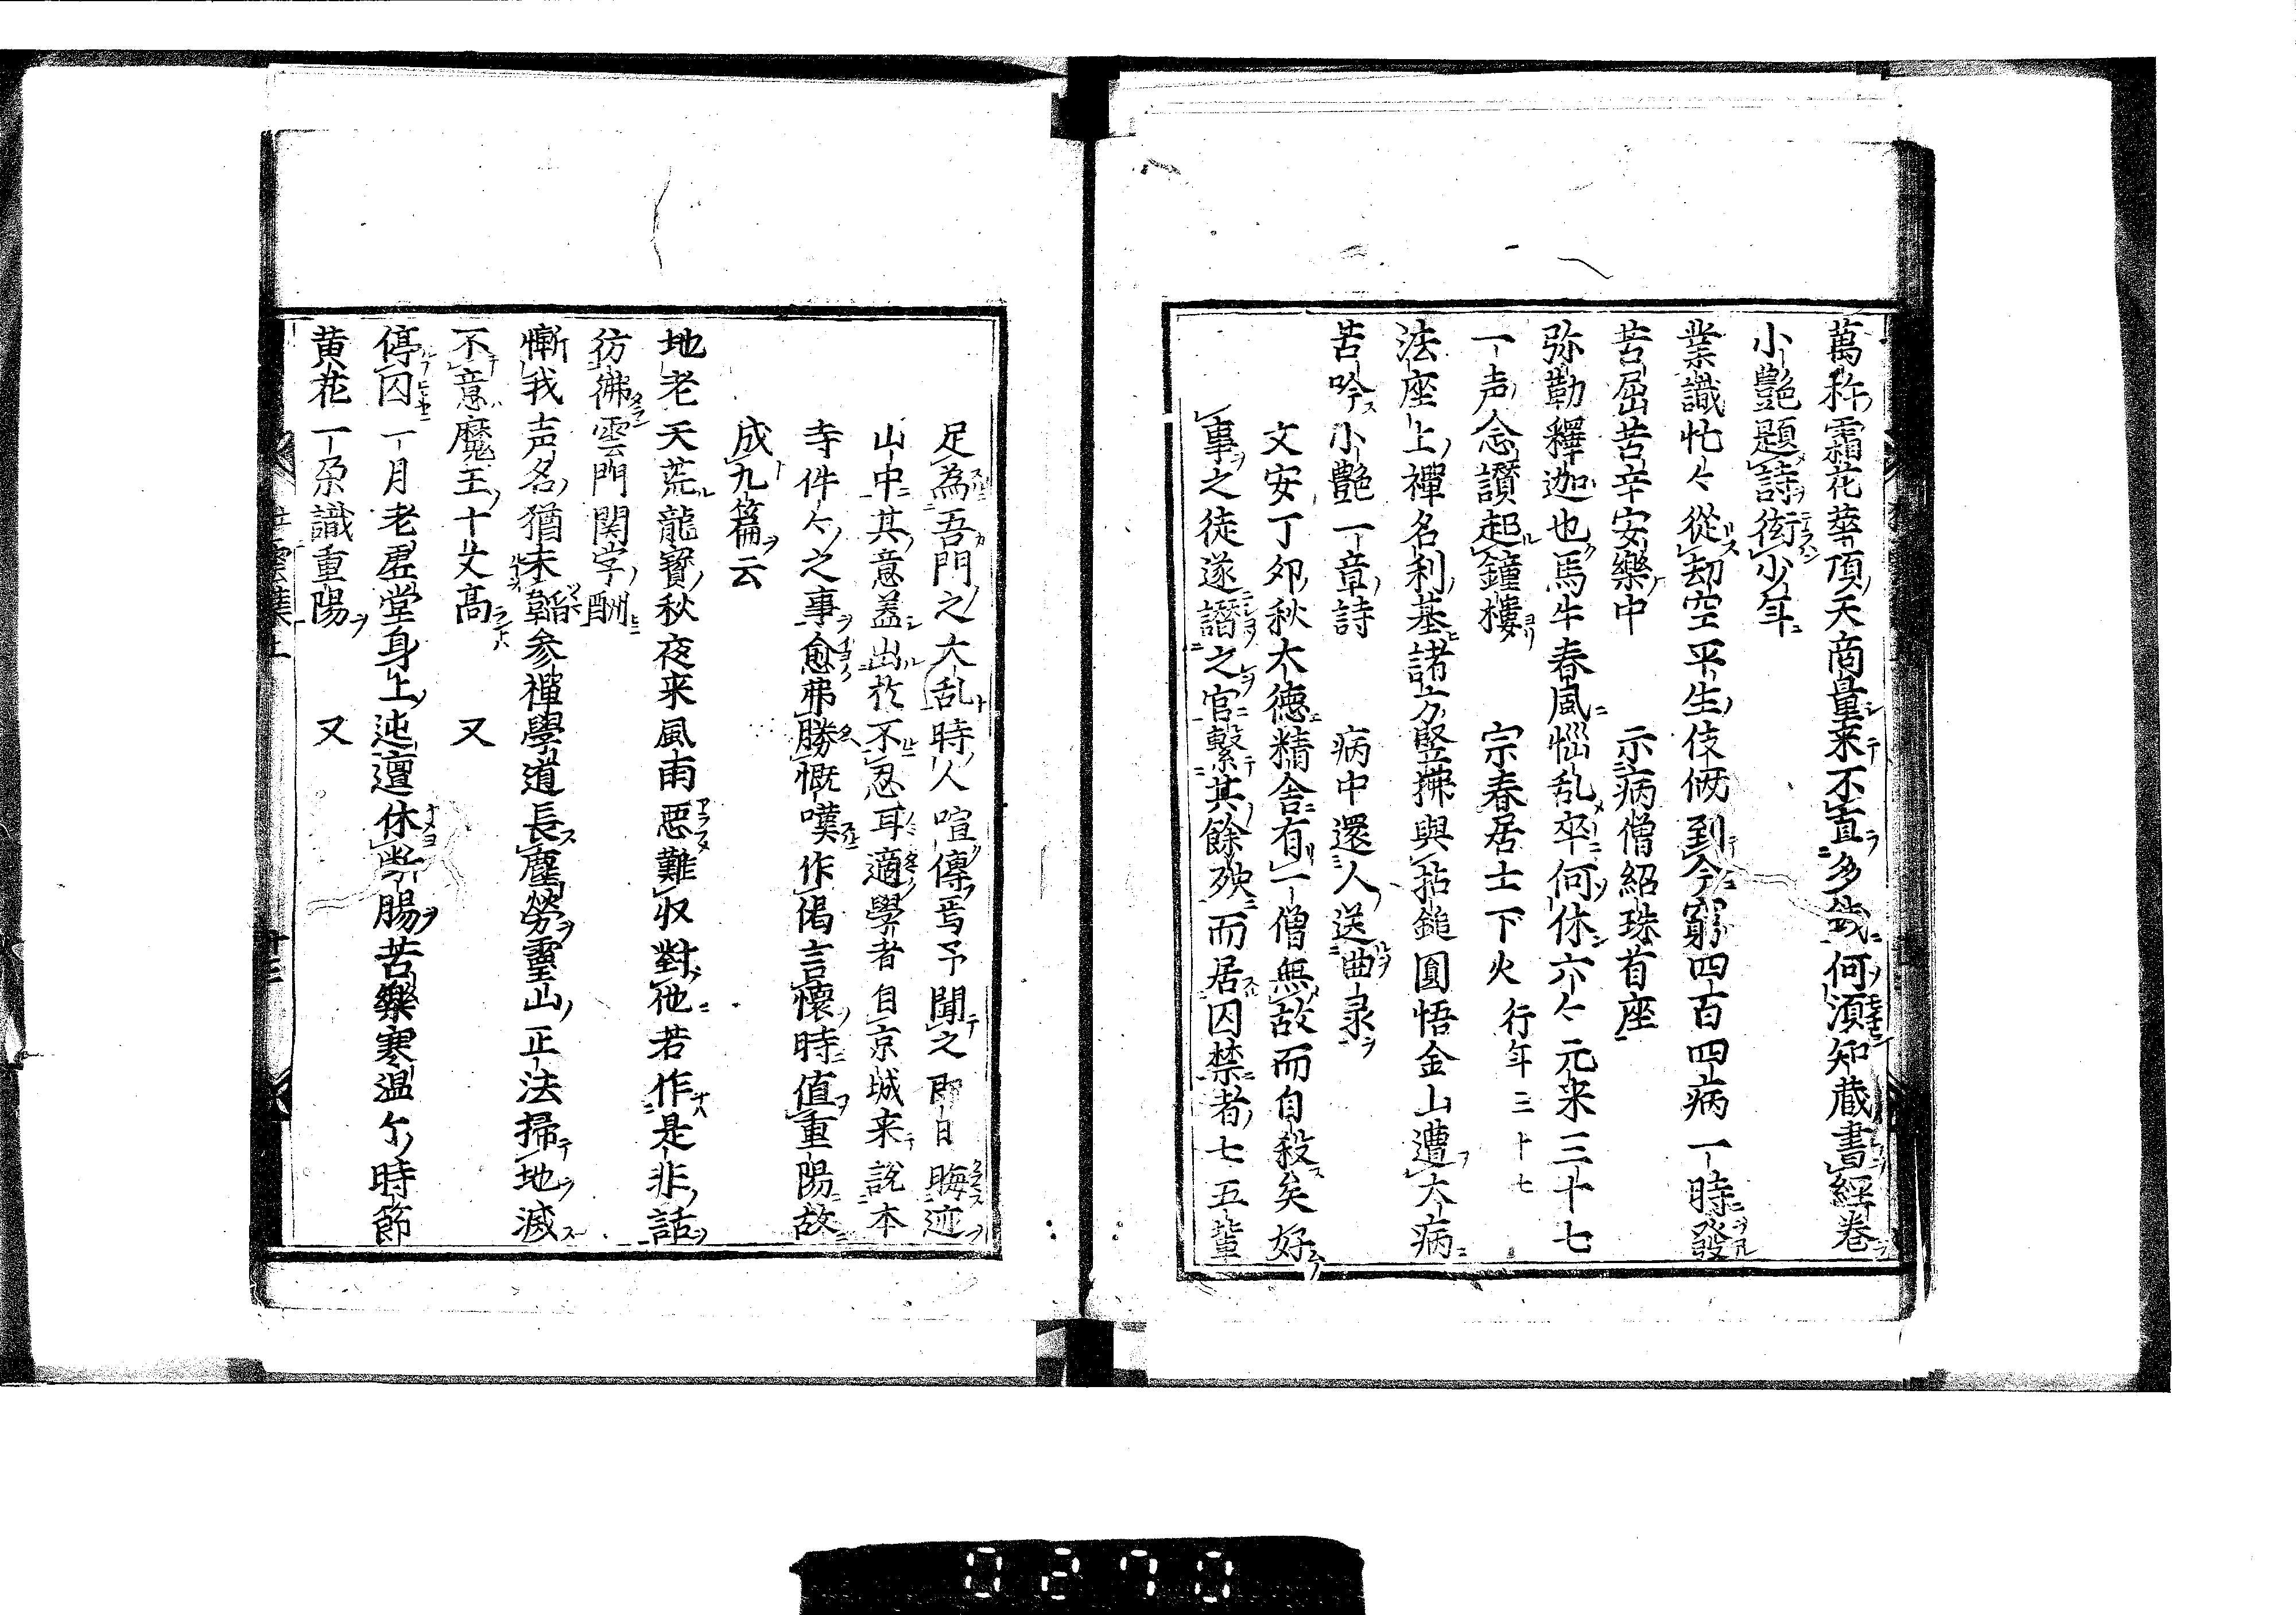 萬秤霜花華頂天商量来不直多錢何湏知蔵書經卷
小艷題詩衒少年
業識忙〻從刧空平生伎倆到今窮四百四病一時發
苦屈苦辛安樂中　示病僧紹珠首座
弥勒釋迦也馬牛春風惱乱卒何休六〻元来三十七
一声念讃起鐘樓　宗春居士下火　行年三十七
法座上禪名利基諸方竪拂與拈鎚圓悟金山遭大病
苦吟小艷一章詩　病中還人送曲录
文安丁夘秋大德精舎有一僧無故而自殺矣好
事之徒遂譖之官繋其餘殃而居囚禁者七五輩
足為吾門之大乱時人喧傳焉予聞之即日晦迹
山中其意盖出於不忍耳適學者自京城来說本
寺件〻之事愈弗勝慨嘆作偈言懷時值重陽故
成九篇云
地老天荒龍寳秋夜来風雨惡難収對他若作是非話
彷彿雲門関字酬
慚我声名猶未韜參禪學道長塵勞靈山正法掃地滅
不意魔王十丈髙　又
停囚一月老虗堂身上迍邅休断腸苦樂寒温个時節
黄花一朶識重陽　又